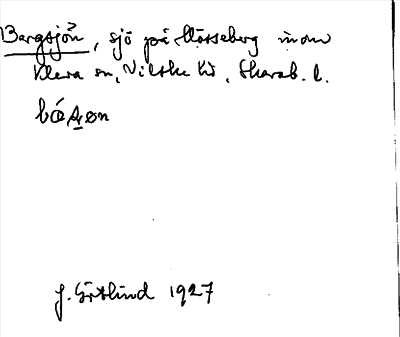 Bergsjön, sjö på Mösseberg inom
Kleva sn, Vilske hd, Skarab. l.
J. Götlind 1927